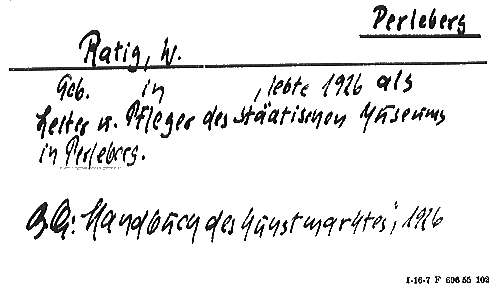 Perleberg
Ratig, W.
Geb. in , lebte 1926 als
Leiter u. Pfleger des Städtischen Museums
in Perleberg.
Handbuch des Kunstmarktes", 1926
I-16-7 F 696 55 102